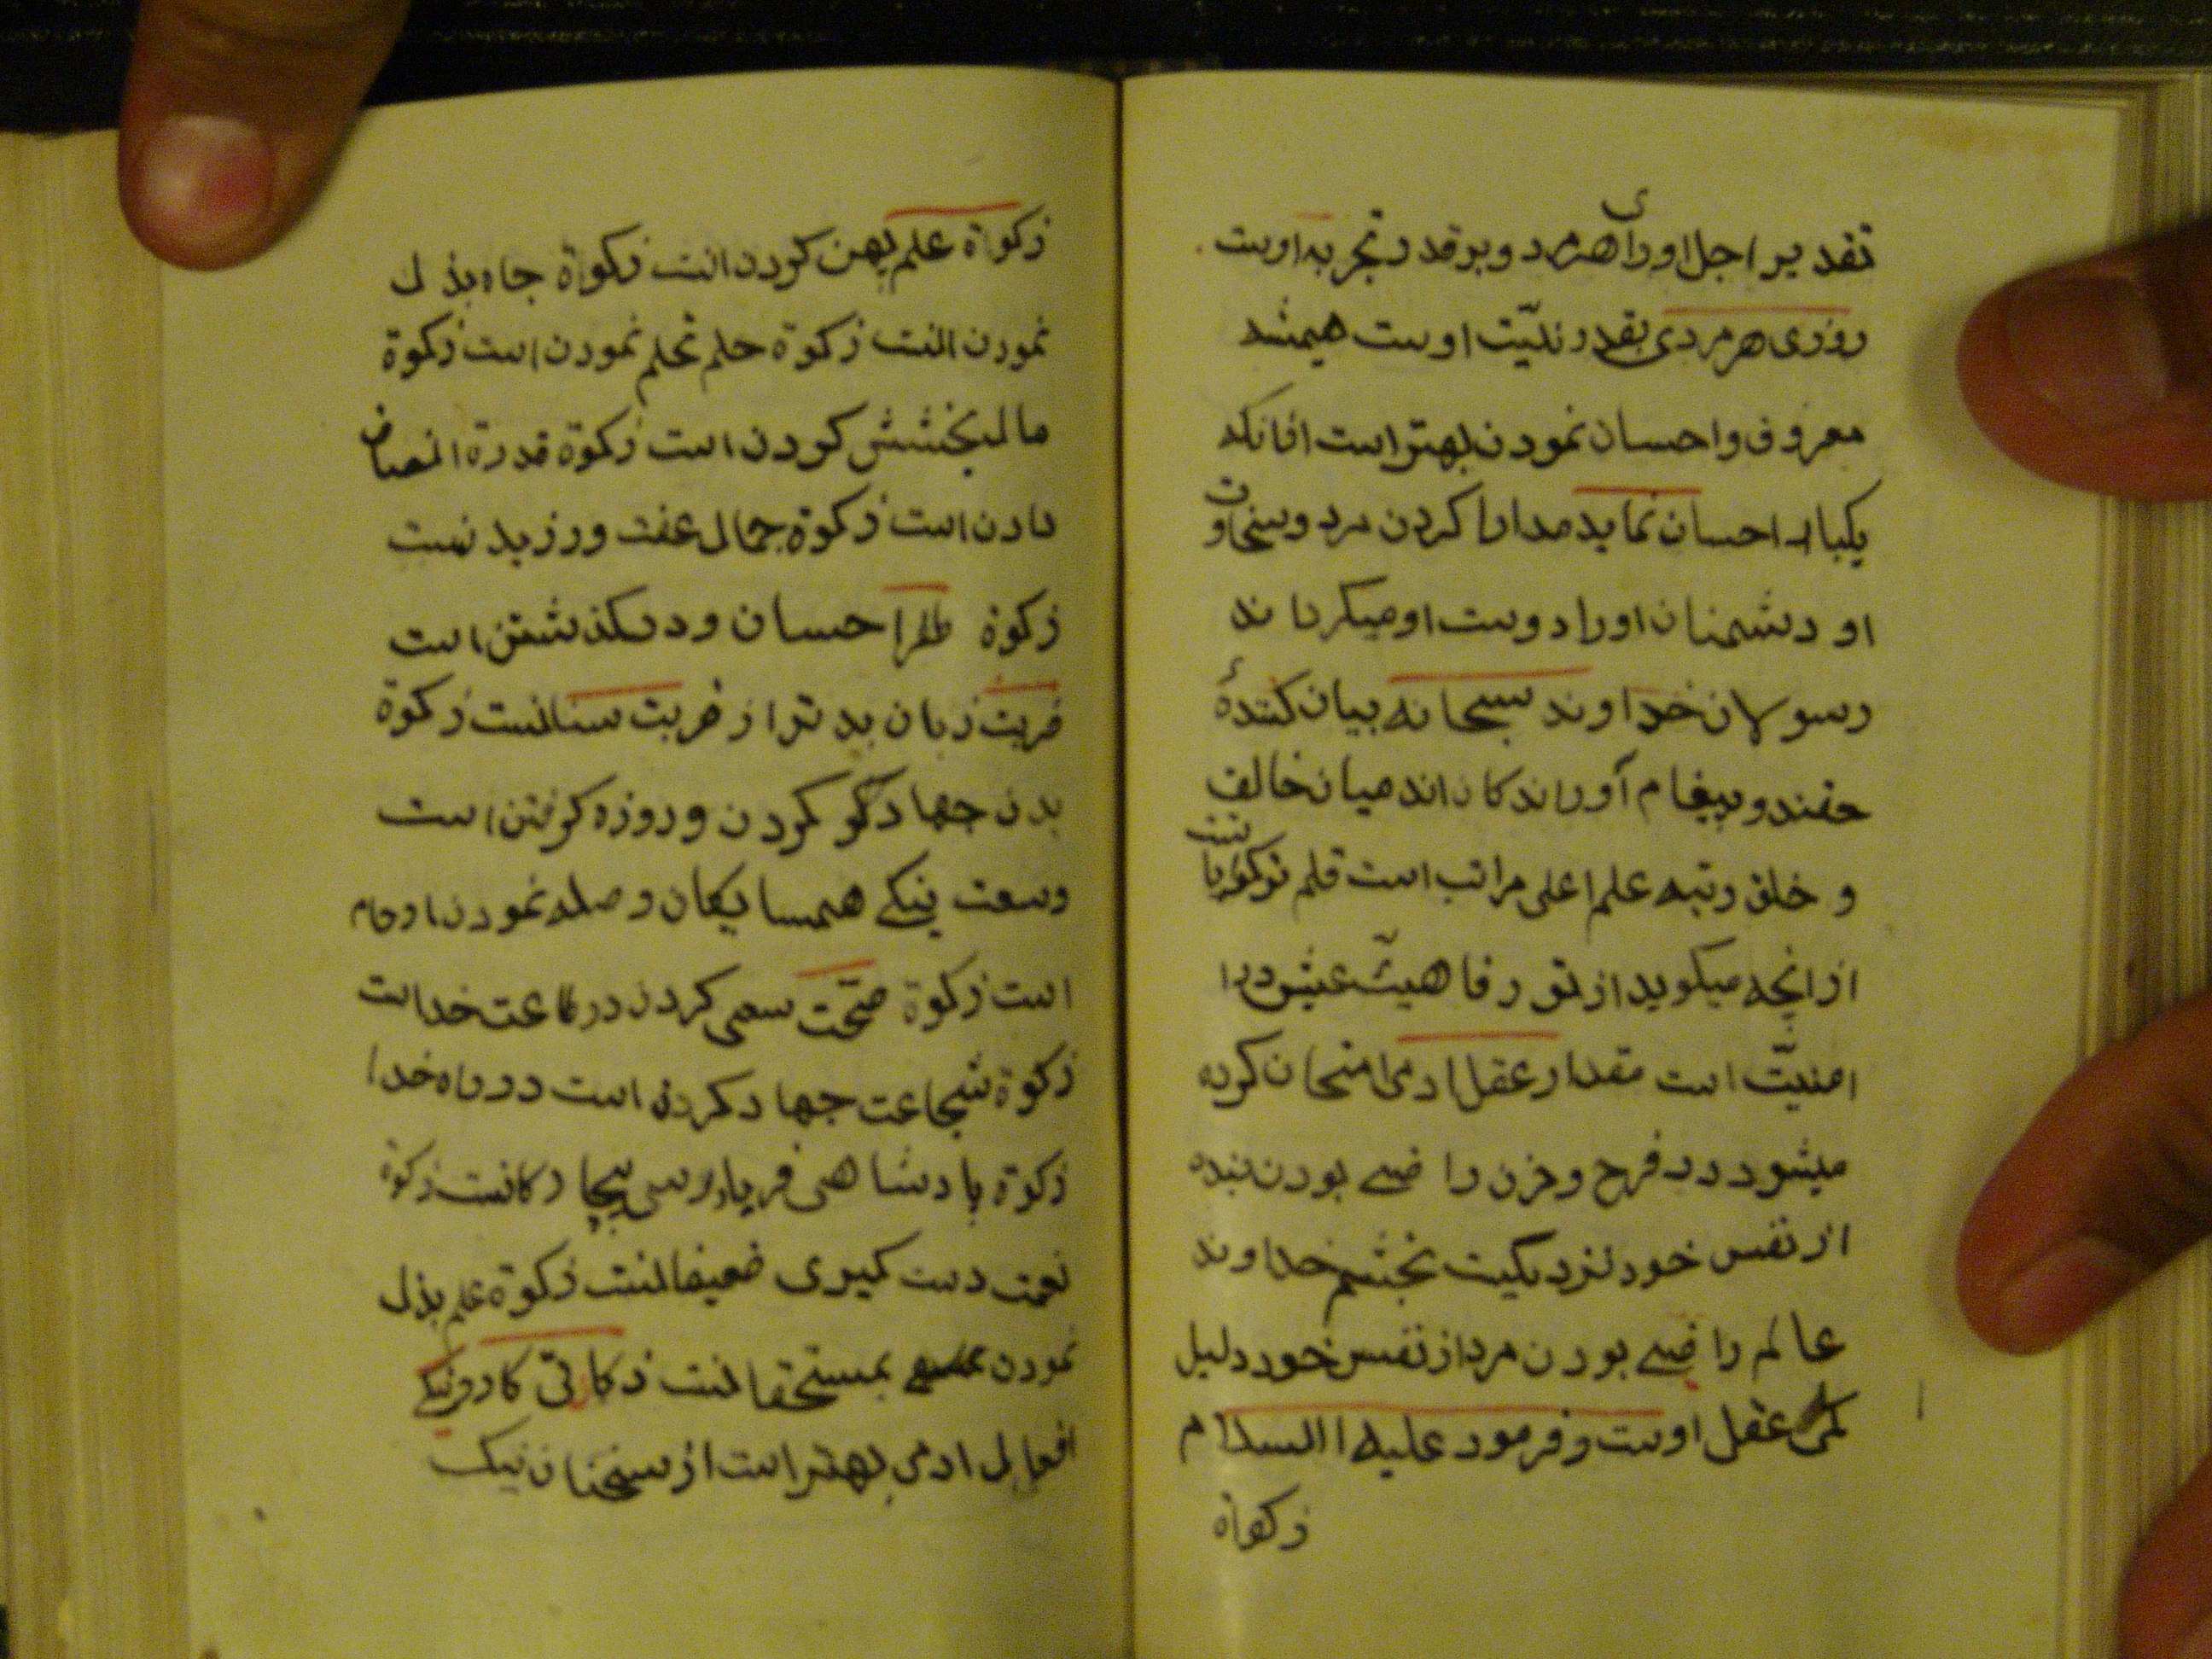 تقدیر اجل او رای هر مرد و بر قدر تجربه اوست
روزی هر مردی بقدر نیّت اوست همیشه
معروف و احسان نمودن بهتر است اذانکه
یکبار احسان نماید مدارا کردن مرد و سخاوت
او دشمنان اورا دوست او میگرداند
رسولان خداوند سبحانه بیان کنندهٔ
حقند و پیغام آورانند کان اند میان خالق
و خلق رتبه علم اعلی مراتب است قلم تو کویاتنست
از انچه میکوید از تو رفاهیت عیش در
امنیّت است مقدار عقل ادمی امتحان کرده
میشود در فرح و حزن راضی بودن بنده
از نفس خود نزدیکیت بخشم خداوند
عالم راضی بودن مرد از نفس خود دلیل
کمی عقل اوست و فرمود علیه السلام
زکواة
زکواة علم پهن کردن انست زکواة جاه بذل
نمودن انست زکوة حلم تحلم نمودن است زکوة
مال بخشش کردن است زکوة قدرة انصاف
دادن است زکوة جمال عفت ورزیدنست
زکوة ظفر احسان و درگذشتن است
ضربت زبان بدتر از ضربت سنانست زکوة
بدن جهاد کردن و روزه کرفتن است
وسعت نیکی همسایکان و صله نمودن ارحام
است زکوة صحّت سعی کردن در طاعت خداست
زکوة شجاعت جهاد کردن است در راه خدا
زکوة پادشاهی فریادرسی بیچارکانست زکوة
نعمت دست کیری ضعیفانست زکوة علم بذل
نمودن بمستحقانست ذکارتی کار نیکی
افعال ادمی بهتر است از سخنان نیک